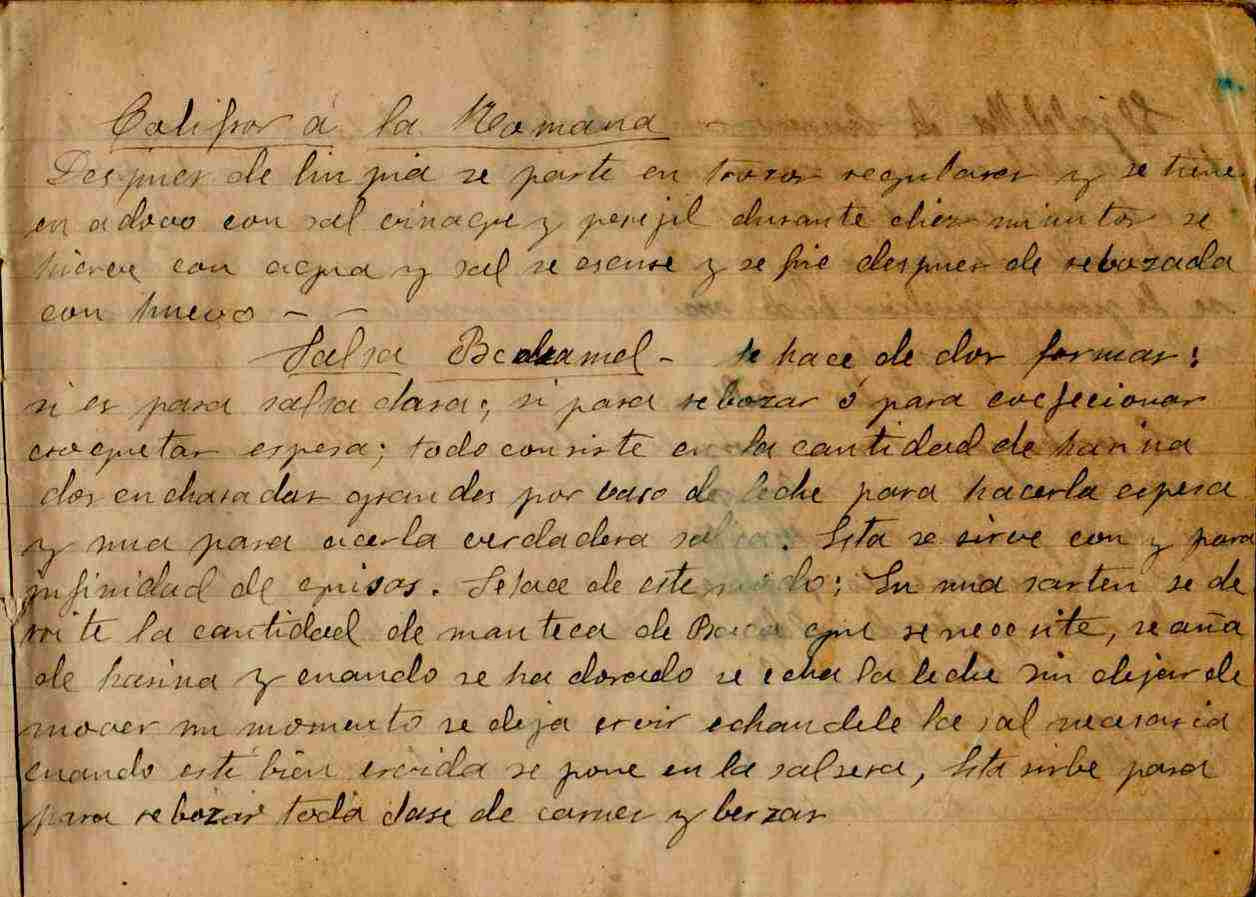 Coliflor á la Romana
Despues de linpia se parte en trosos regulares y se tiene
en adovo con sal vinagre y perejil durante diez minutos se
hierve con agua y sal se escure y se frie despues de rebozada
con huevo - -
Salsa Bechamel - se hace de dos formas:
si es para salsa clara; si para rebozar ó para cocfecionar
croquetas espesa; todo consiste en la cantidad de harina
dos encharadas grandes por vaso de leche para hacerla espesa
y una para acerla verdadera salsa. Esta se sirve con y para
infinidad de guisos. Se hace de este modo; En una sarten se de
rrite la cantidad de manteca de Baca que se necesite, se aña
de harina y cuando se ha dorado se echa la leche sin dejar de
mover un momento se deja ervir echandele la sal necesaria
cuando esté bien ervida se pone en la salsera, Esta sirbe para
para rebozar toda clase de carnes y berzas